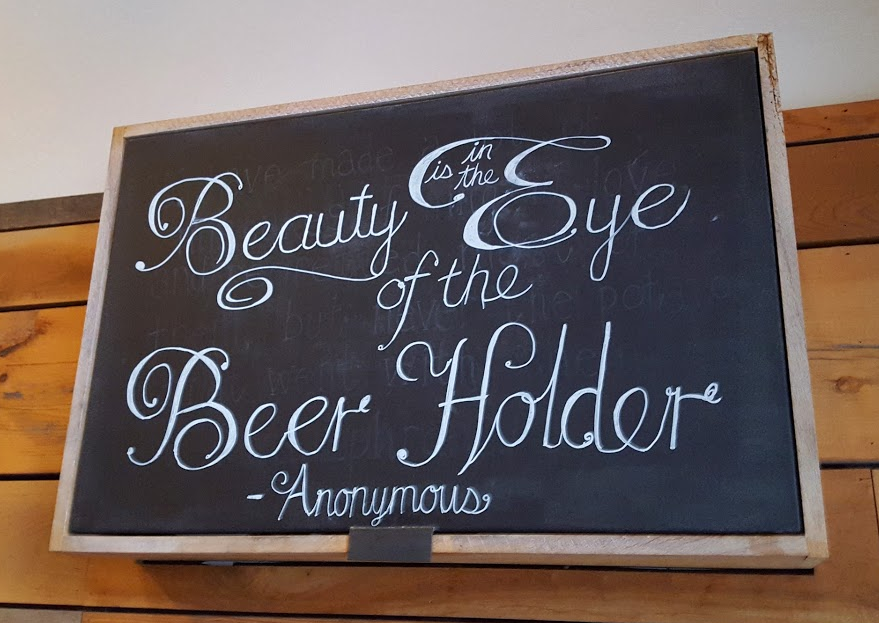 Beauty is in the Eye
of the
Beer Holder
-Anonymous